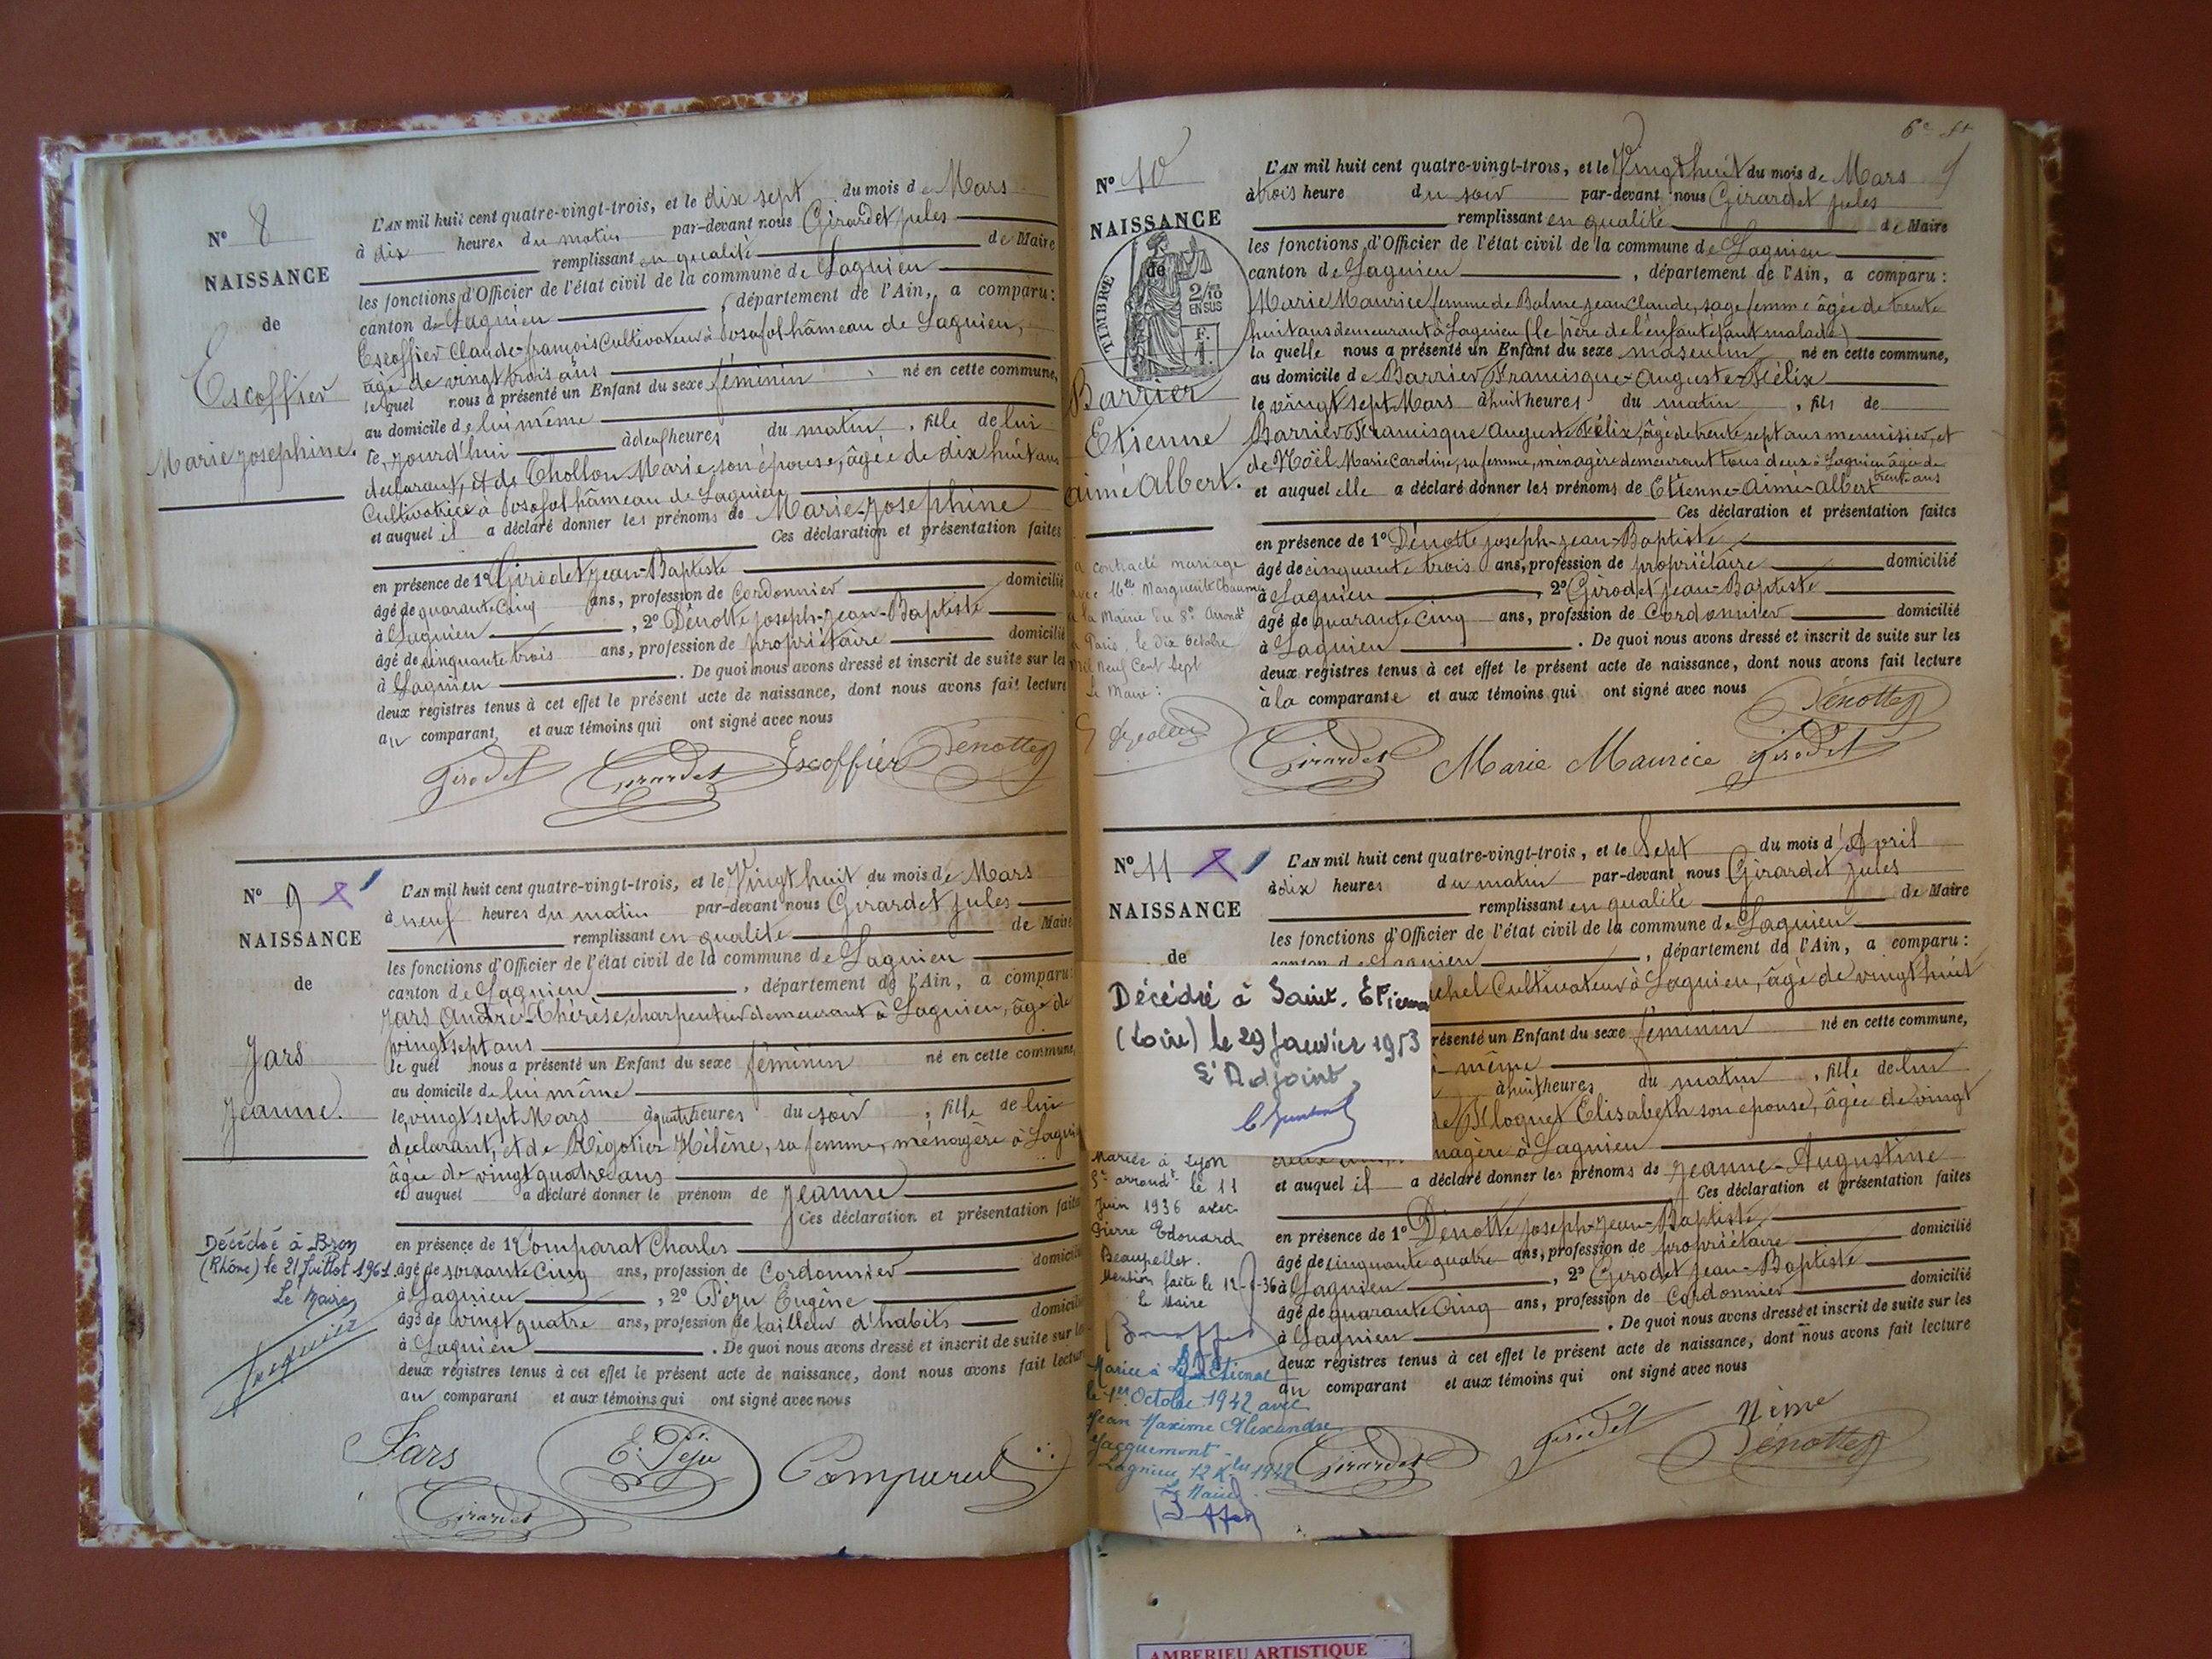 N° 8
NAISSANCE
de
Escoffier
Marie Josephine.
L'AN mil huit cent quatre-vingt-trois, et le dix sept du mois de Mars
à dix heures du matin par-devant nous Girardet Jules
remplissant en qualité de Maire
les fonctions d'Officier de l'état civil de la commune de Lagnieu
canton de Lagnieu, département de l'Ain, a comparu:
Escoffier Claude-François Cultivateur à Posafol hâmeau de Lagnieu,
âgé de vingt trois ans
le quel nous a présenté un Enfant du sexe féminin né en cette commune,
au domicile de lui même
le jourd'hui à deux heures du matin, fille de lui
déclarant, et de Thollon Marie, son épouse, âgée de dix huit ans
Cultivatrice à Posafol hâmeau de Lagnieu
et auquel il a déclaré donner les prénoms de Marie-Josephine
Ces déclaration et présentation faites
en présence de 1° Girodet Jean-Baptiste
âgé de quarante cinq ans, profession de Cordonnier domicilié
à Lagnieu, 2° Dénotte Joseph-Jean-Baptiste
âgé de cinquante trois ans, profession de propriétaire domicilié
à Lagnieu. De quoi nous avons dressé et inscrit de suite sur les
deux registres tenus à cet effet le présent acte de naissance, dont nous avons fait lecture
au comparant, et aux témoins qui ont signé avec nous
Girodet Girardet Escoffier Dénotte
N° 9
NAISSANCE
de
Jars
Jeanne.
L'AN mil huit cent quatre-vingt-trois, et le Vingt huit du mois de Mars
à neuf heures du matin par-devant nous Girardet Jules
remplissant en qualité de Maire
les fonctions d'Officier de l'état civil de la commune de Lagnieu
canton de Lagnieu, département de l'Ain, a comparu:
Jars André-Thérèse, charpentier demeurant à Lagnieu, âgé de
vingt sept ans
le quel nous a présenté un Enfant du sexe féminin né en cette commune,
au domicile de lui même
le vingt sept Mars à quatre heures du soir, fille de lui
déclarant, et de Rigotier Hélène, sa femme, ménagère à Lagnieu
âgée de vingt quatre ans
et auquel a déclaré donner le prénom de Jeanne
Ces déclaration et présentation faites
en présence de 1° Comparat Charles
âgé de soixante cinq ans, profession de Cordonnier domicilié
à Lagnieu, 2° Péju Eugène
âgé de vingt quatre ans, profession de tailleur d'habits domicilié
à Lagnieu. De quoi nous avons dressé et inscrit de suite sur les
deux registres tenus à cet effet le présent acte de naissance, dont nous avons fait lecture
au comparant et aux témoins qui ont signé avec nous
Décédée à Bron
(Rhône) le 21 Juillet 1961
Le Maire
Jars E. Péju Comparat
Girardet
6e
N° 10
NAISSANCE
de
TIMBRE
2/10
EN SUS
F.
1.
Barrier
Etienne
aimé Albert.
L'AN mil huit cent quatre-vingt-trois, et le Vingt huit du mois de Mars
à trois heure du soir par-devant nous Girardet Jules
remplissant en qualité de Maire
les fonctions d'Officier de l'état civil de la commune de Lagnieu
canton de Lagnieu, département de l'Ain, a comparu:
Marie Maurice femme de Balme Jean Claude, sage femme âgée de trente
huit ans demeurant à Lagnieu (le père de l'enfant étant malade)
la quelle nous a présenté un Enfant du sexe masculin né en cette commune,
au domicile de Barrier Francisque-Auguste-Félix
le vingt sept Mars à huit heures du matin, fils de
Barrier Francisque Auguste Félix, âgé de trente sept ans menuisier, et
de Noël Marie Caroline, sa femme, ménagère demeurant tous deux à Lagnieu âgée de
trent-ans
et auquel elle a déclaré donner les prénoms de Etienne-Aimé-Albert
Ces déclaration et présentation faites
en présence de 1° Dénotte Joseph-Jean-Baptiste
âgé de cinquante trois ans, profession de propriétaire domicilié
à Lagnieu, 2° Girodet Jean-Baptiste
âgé de quarante cinq ans, profession de Cordonnier domicilié
à Lagnieu. De quoi nous avons dressé et inscrit de suite sur les
deux registres tenus à cet effet le présent acte de naissance, dont nous avons fait lecture
à la comparante et aux témoins qui ont signé avec nous
a contracté mariage
avec Melle Marguerite Chaume
à la Mairie du 8e Arrondt
à Paris, le dix Octobre
mil neuf cent sept
Le Maire:
Dénotte
Girardet Marie Maurice Girodet
N° 11
NAISSANCE
de
L'AN mil huit cent quatre-vingt-trois, et le Sept du mois d'Avril
à dix heures du matin par-devant nous Girardet Jules
remplissant en qualité de Maire
les fonctions d'Officier de l'état civil de la commune de Lagnieu
canton de Lagnieu, département de l'Ain, a comparu:
Cultivateur à Lagnieu, âgé de vingt huit
présenté un Enfant du sexe féminin né en cette commune,
même
à huit heures du matin, fille de lui
Elisabeth son épouse, âgée de vingt
à Lagnieu
et auquel il a déclaré donner les prénoms de Jeanne-Augustine
Ces déclaration et présentation faites
en présence de 1° Dénotte Joseph-Jean-Baptiste
âgé de cinquante quatre ans, profession de propriétaire domicilié
à Lagnieu, 2° Girodet Jean-Baptiste
âgé de quarante cinq ans, profession de Cordonnier domicilié
à Lagnieu. De quoi nous avons dressé et inscrit de suite sur les
deux registres tenus à cet effet le présent acte de naissance, dont nous avons fait lecture
au comparant et aux témoins qui ont signé avec nous
Décédée à Saint-Etienne
(Loire) le 29 Janvier 1953
L'Adjoint,
Mariée à Lyon
5e arrondt le 11
Juin 1936 avec
Pierre Edouard
Beaupellet.
Mention faite le 12-6-36
le Maire
Mariée à St Etienne
le 1er Octobre 1942 avec
Jean Maxime Alexandre
Jacquemont
Lagnieu, 12 Xbre 1942
Le Maire
Girardet Girodet Nême
Dénotte
AMBERIEU ARTISTIQUE